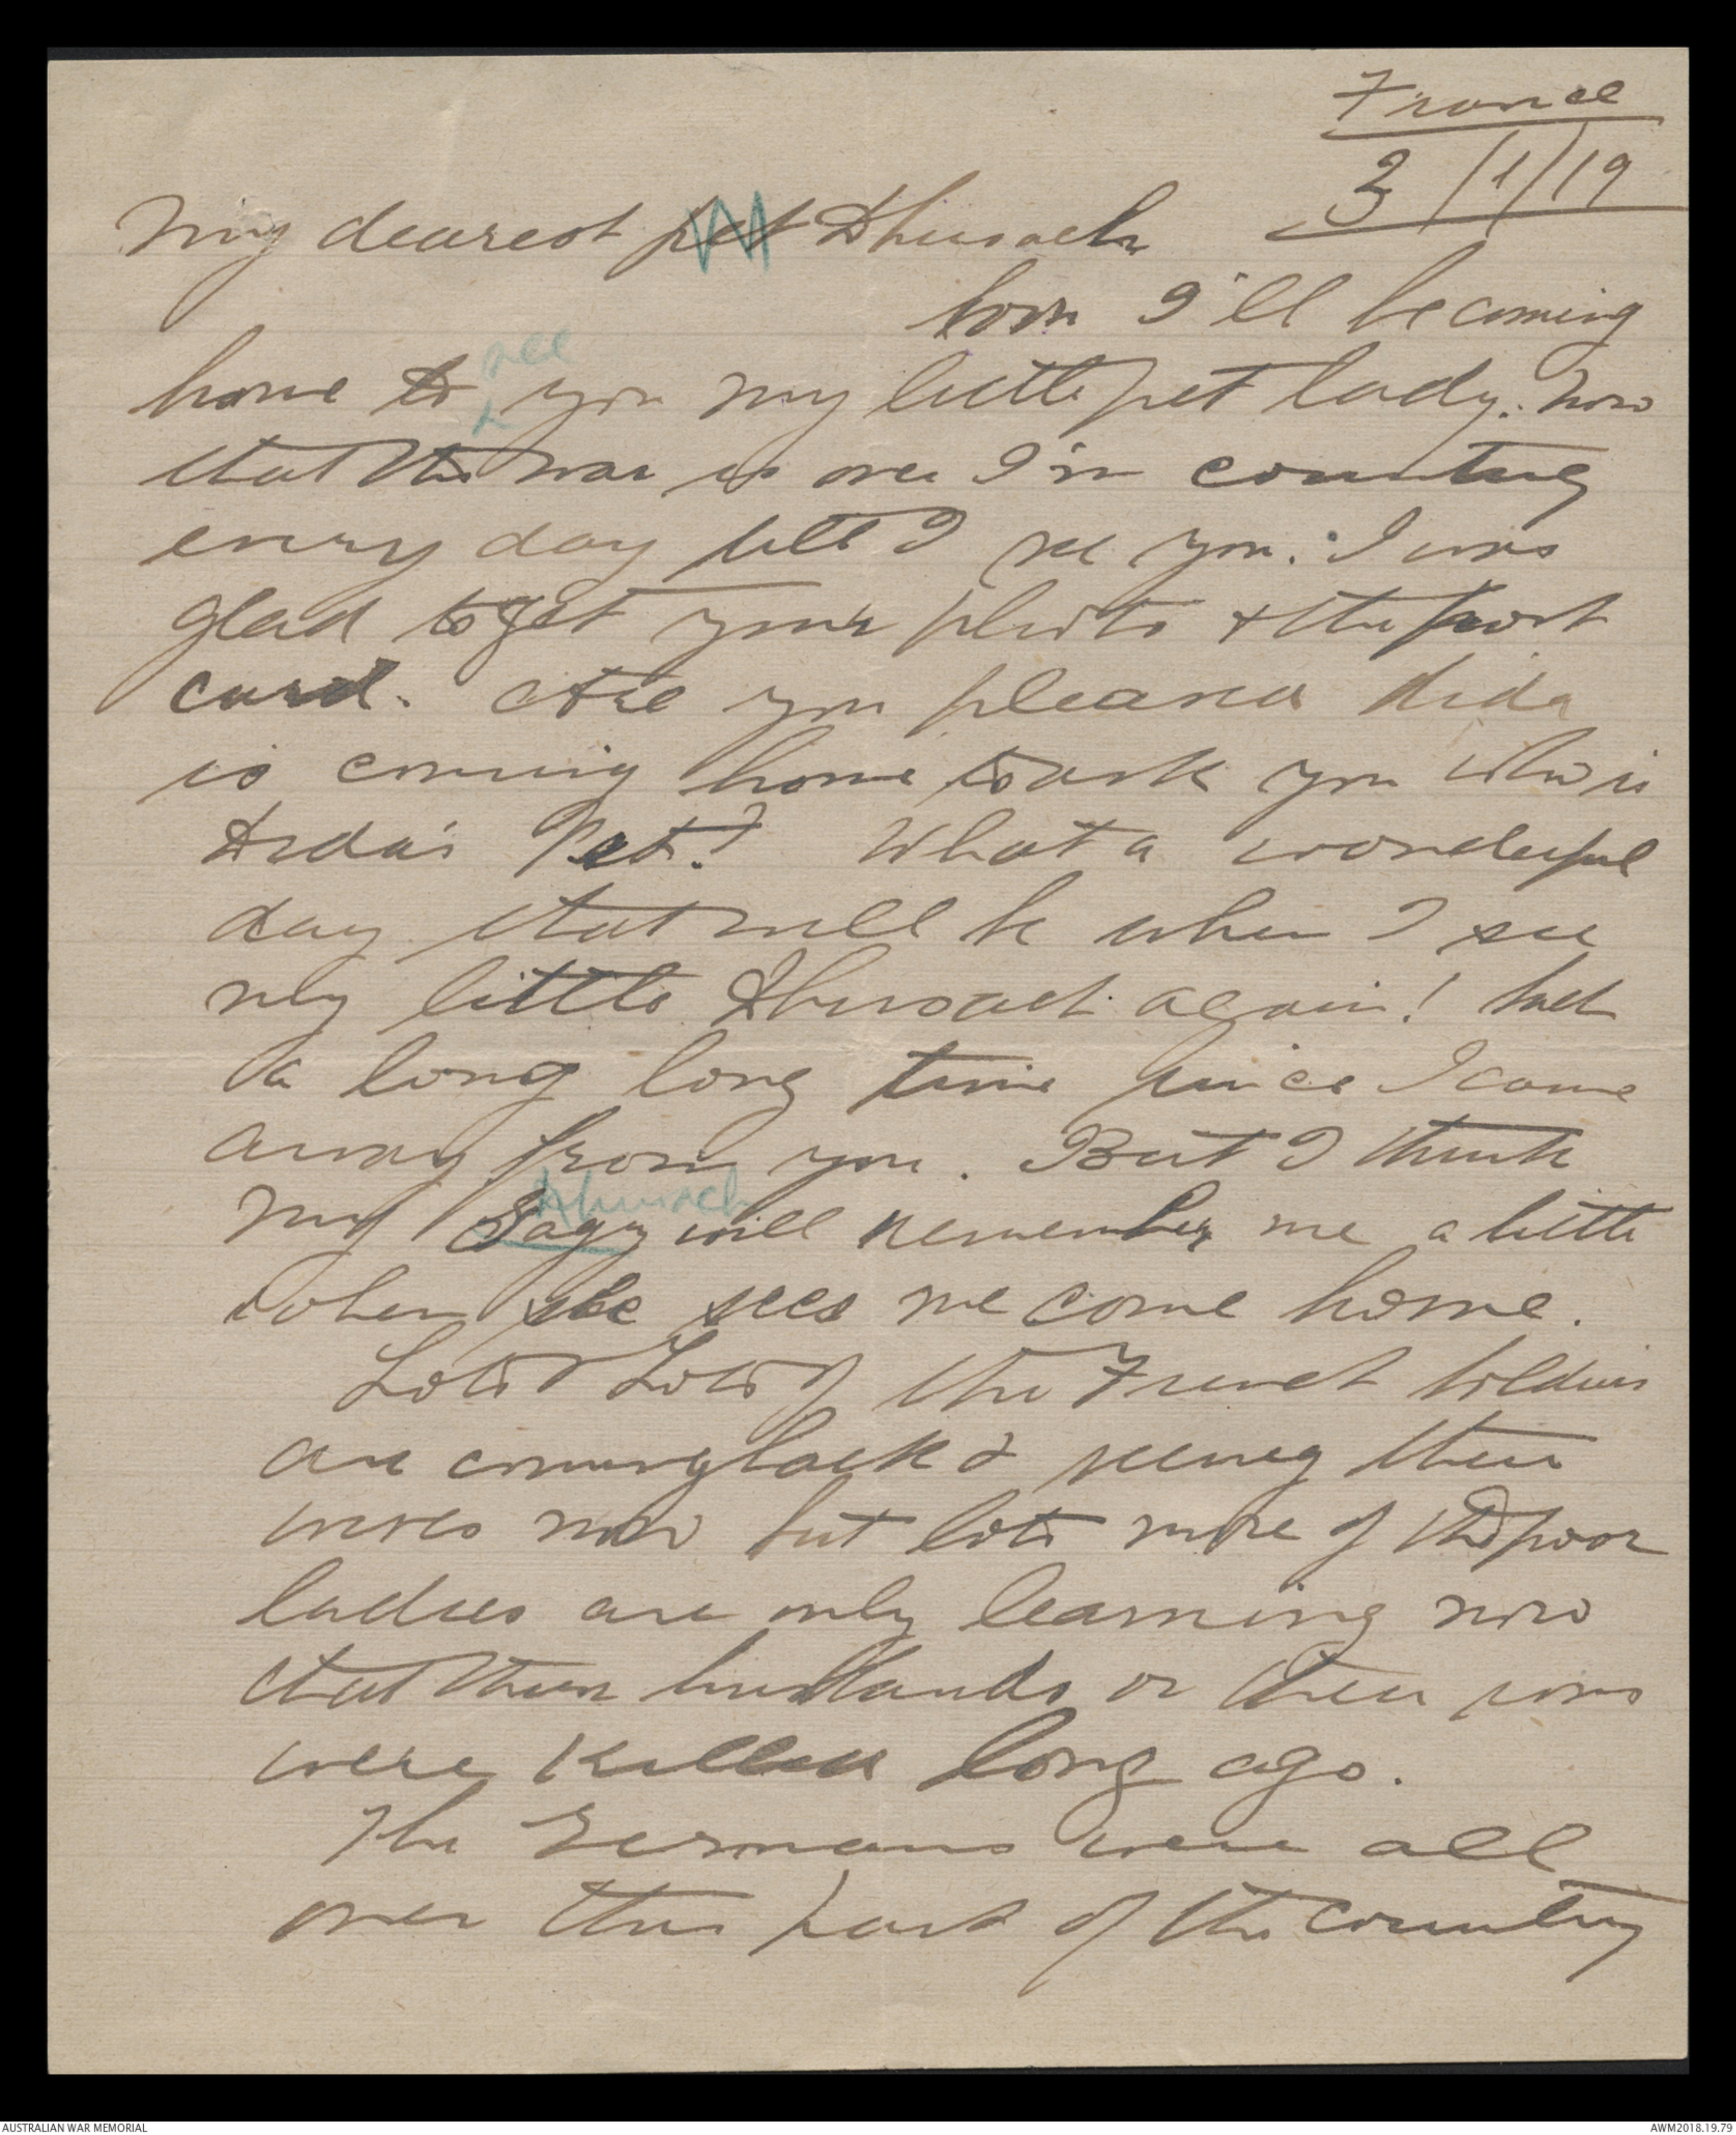 France
3/1/19
My dearest pet Dhurach
Soon I'll be coming
see
home to you my little pet lady. Now
that the war is over I'm counting
every day till I see you. I was
glad to get your photo & the post
card. Are you pleased Dida
is coming home to ask you who is
Dida's Pet? What a wonderful
day that will be when I see
my little Dhurach again! Such
a long long time since I came
away from you. But I think
Dhurach
my will remember me a little
when she sees me come home.
Lots & Lots of the French soldiers
are coming back & seeing their
wives now but lots more of the poor
ladies are only learning now
that their husbands or their sons
were killed long ago.
The Germans were all
over this part of the country
AUSTRALIAN WAR MEMORIAL
AWM2018.19.79